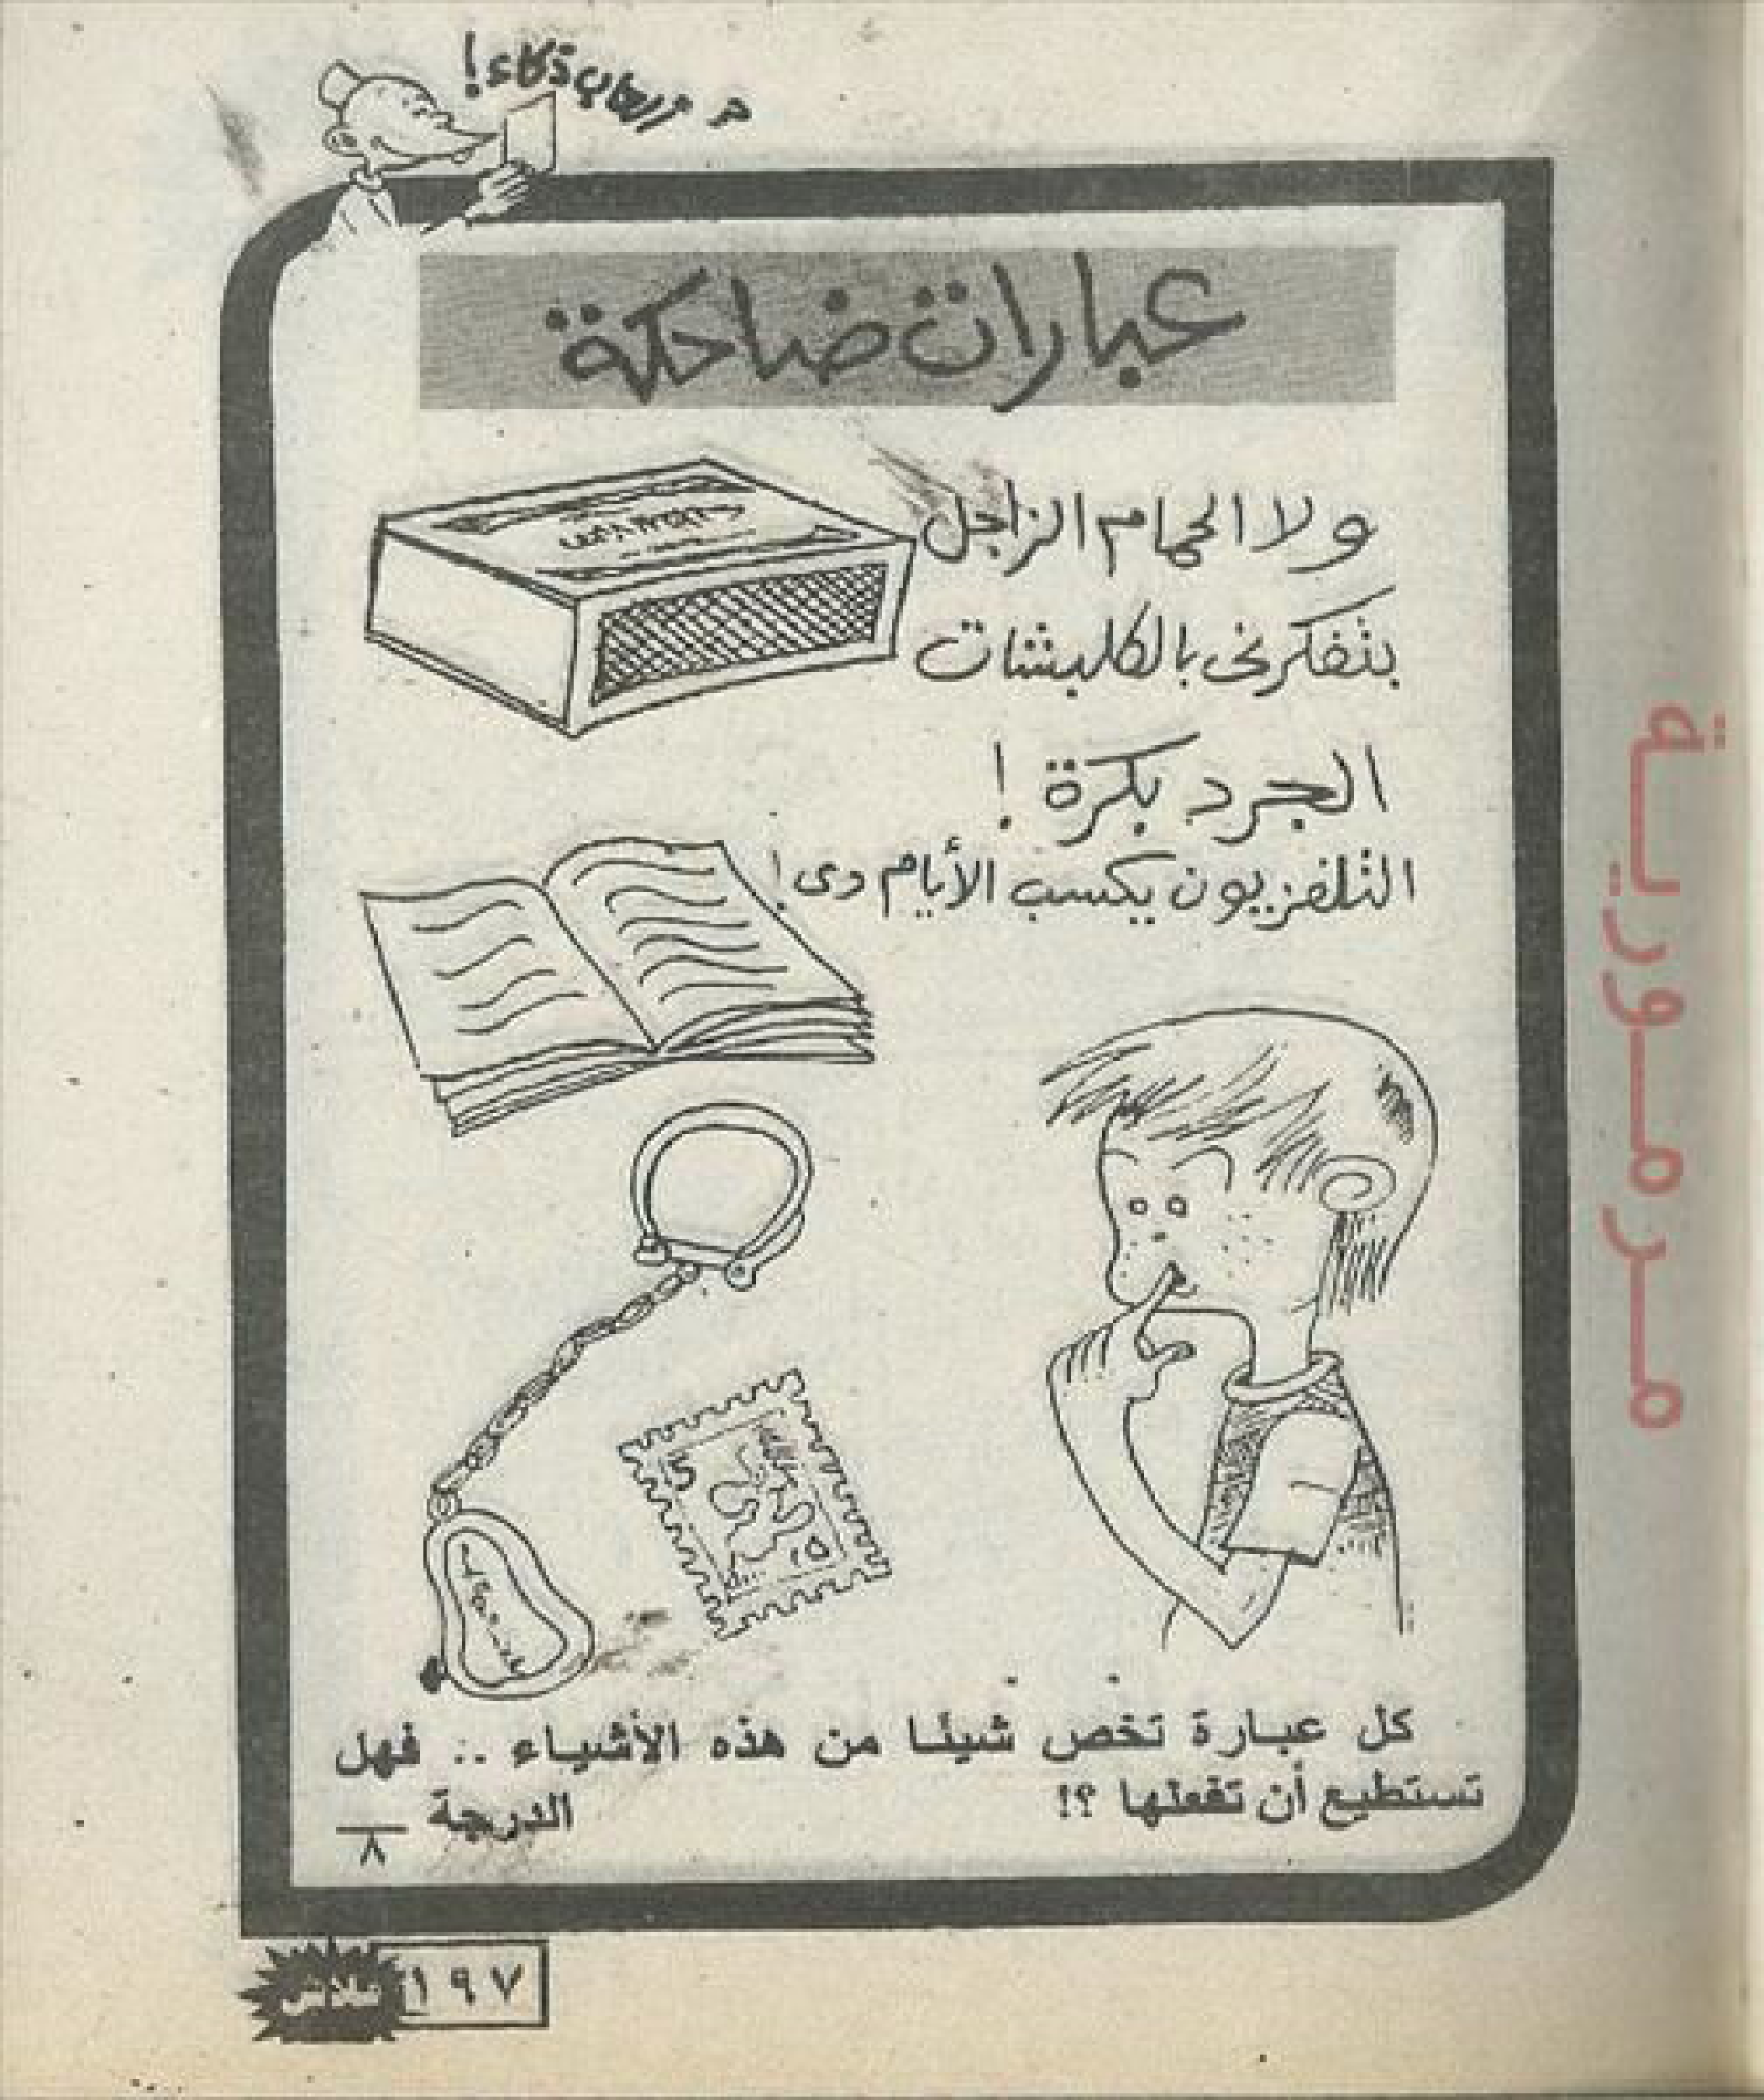 ذكاء!
عبارات ضاحكة
ولا الحمام الزاجل
بتفكرنى بالكلبشات
الجرد بكرة !
التلفزيون يكسب الأيام دى !
كل عبارة تخص شيئا من هذه الأشياء .. فهل
تستطيع أن تفعلها ؟!
الدرجة ٨
١٩٧
فلاش
مرمورية